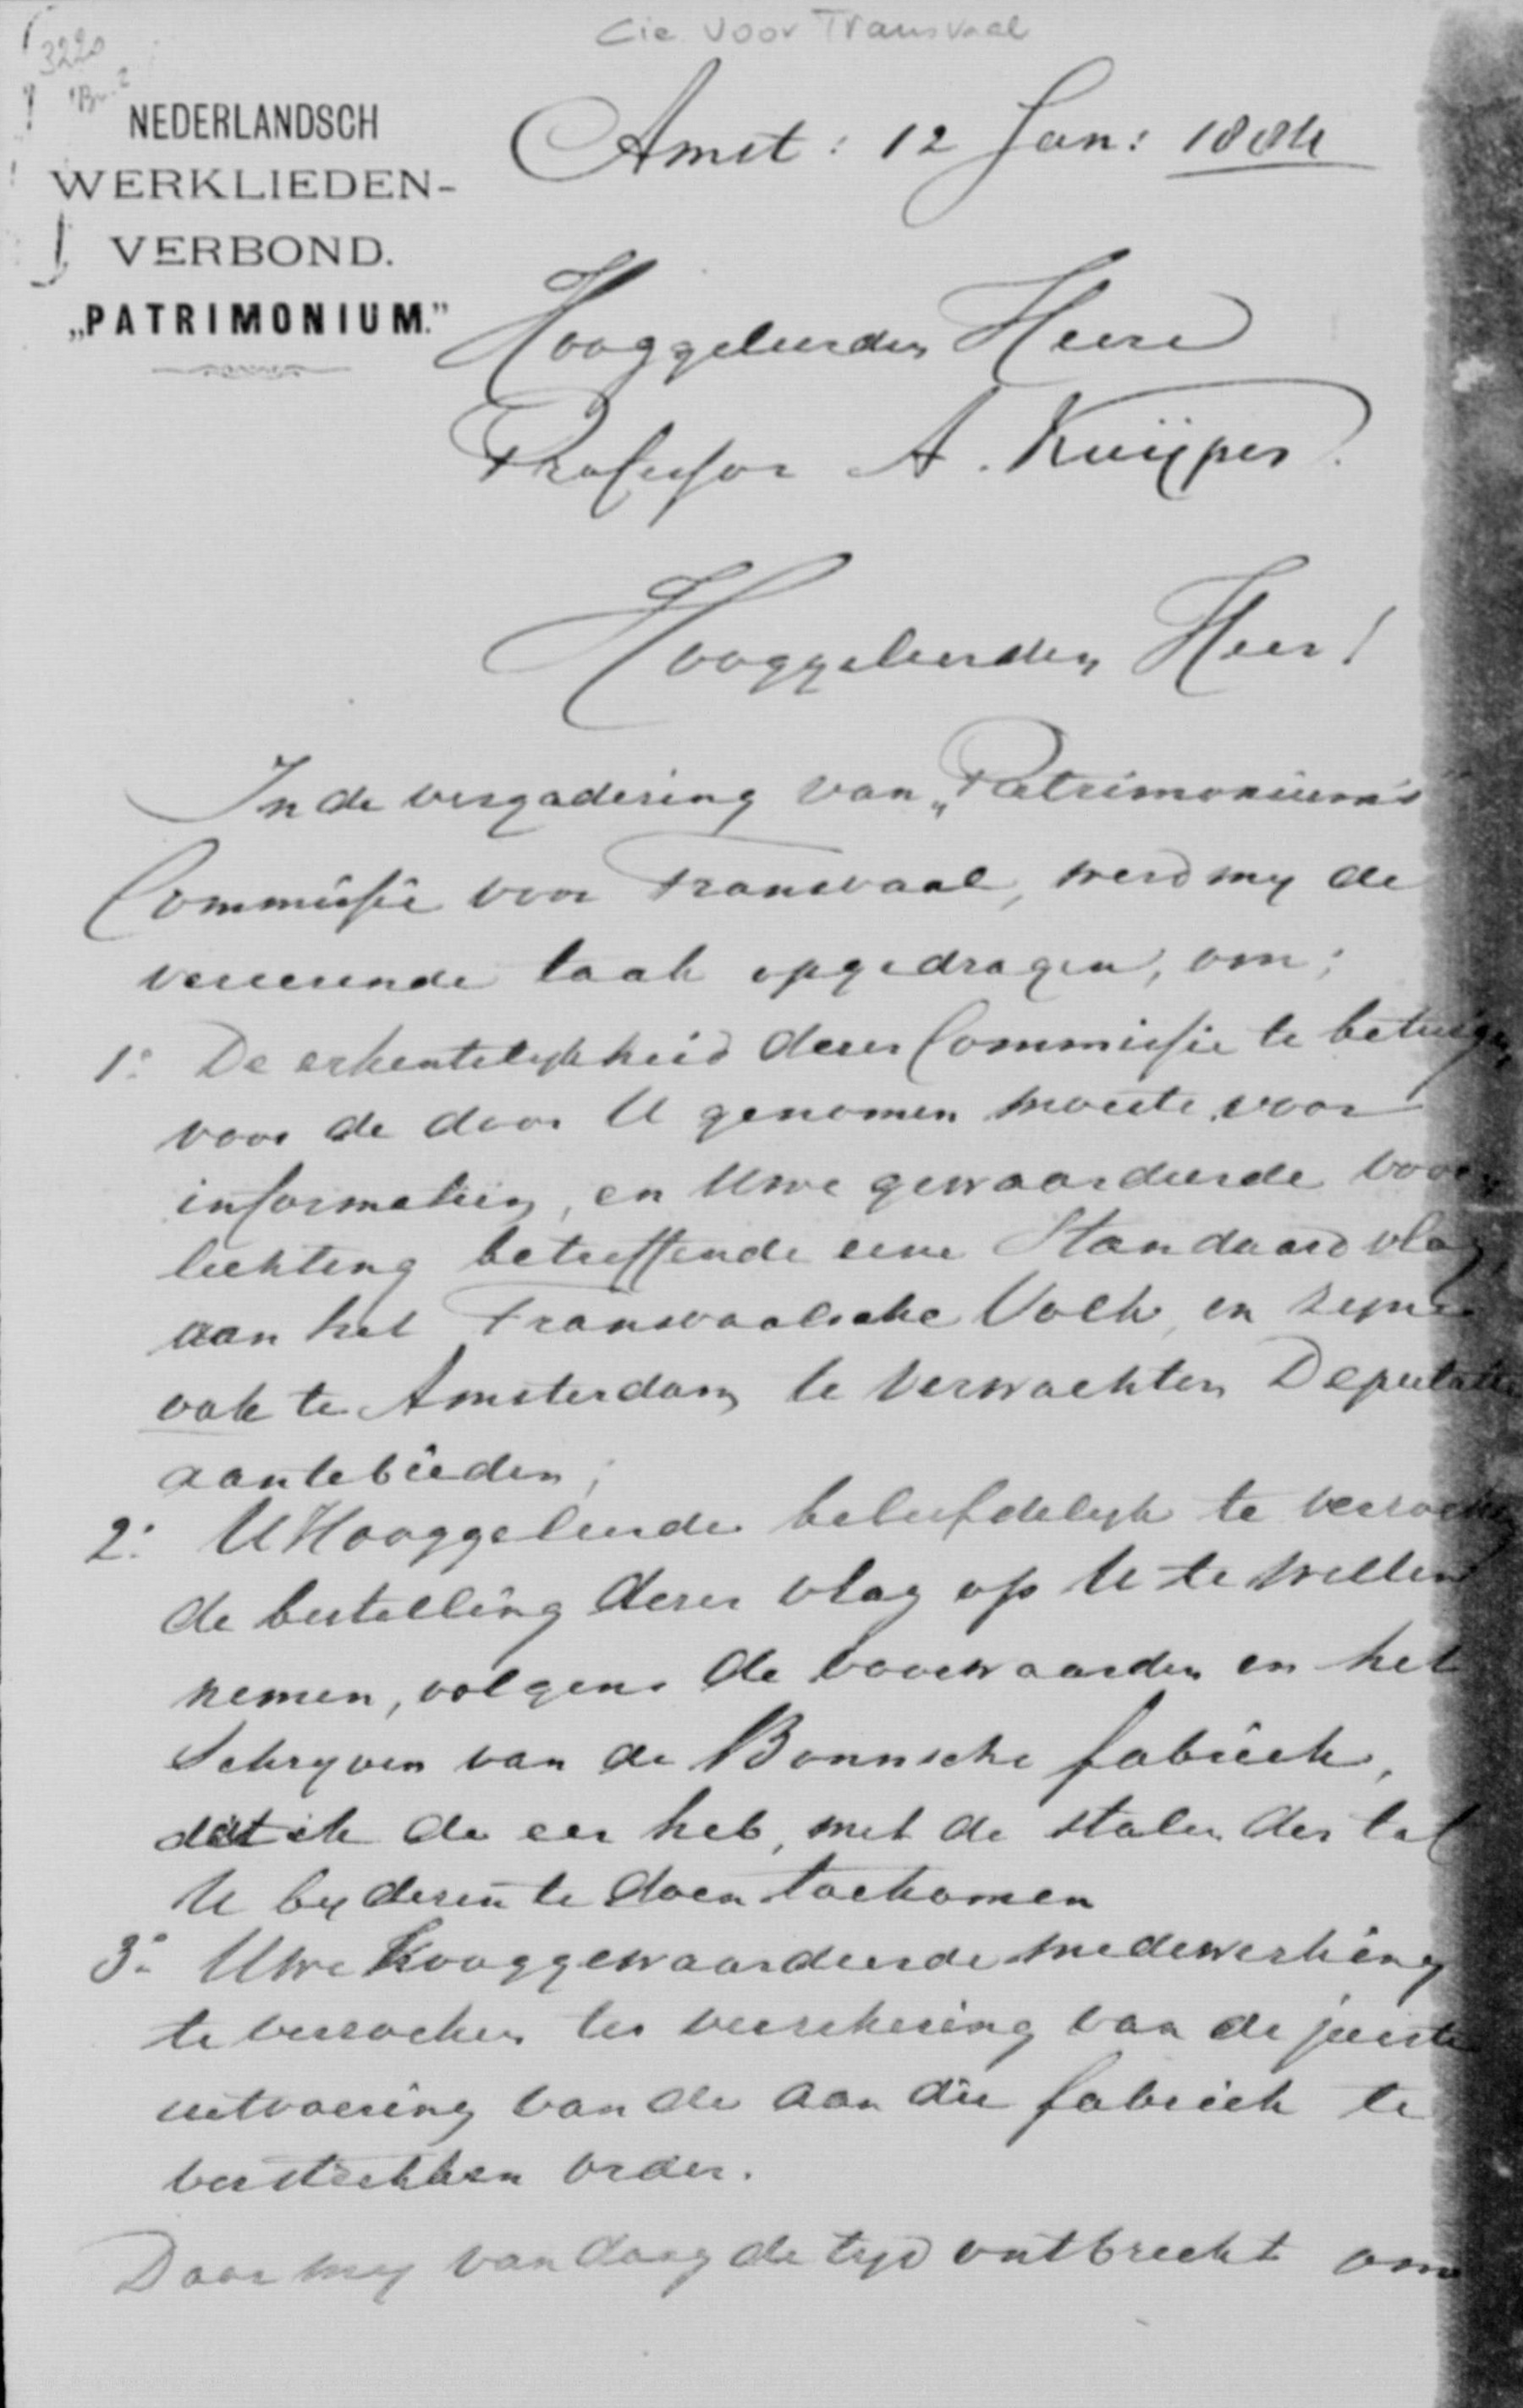 Cie voor Transvaal
3220
NEDERLANDSCH
WERKLIEDEN-
VERBOND.
„PATRIMONIUM."
Amst: 12 Jan: 1884
Hooggeleerden Heere
Professor A. Kuijper.
Hooggeleerden Heer!
In de vergadering van „Patrimonium's"
Commissie voor Transvaal, werd my de
vereerende taak opgedragen, om;
1° De erkentelykheid dezer Commissie te betuigen
voor de door U genomen moeite voor
informatiën, en Uwe gewaardeerde voor
lichting betreffende eene Standaard vlag,
aan het Transvaalsche Volk, en zyne
ook te Amsterdam te verwachten Deputatie
aantebieden;
2° UHooggeleerde beleefdelyk te verzoeken
de bestelling dezer vlag op U te willen
nemen, volgens de voorwaarden en het
Schryven van de Bonnsche fabriek,
dat ik de eer heb, met de stalen der tot
U by dezen te doen toekomen
3° Uwe hooggewaardeerde medewerking
te verzoeken ter verzekering van de juiste
uitvoering van de aan die fabriek te
verstrekken order.
Daar my van daag de tyd ontbreekt om